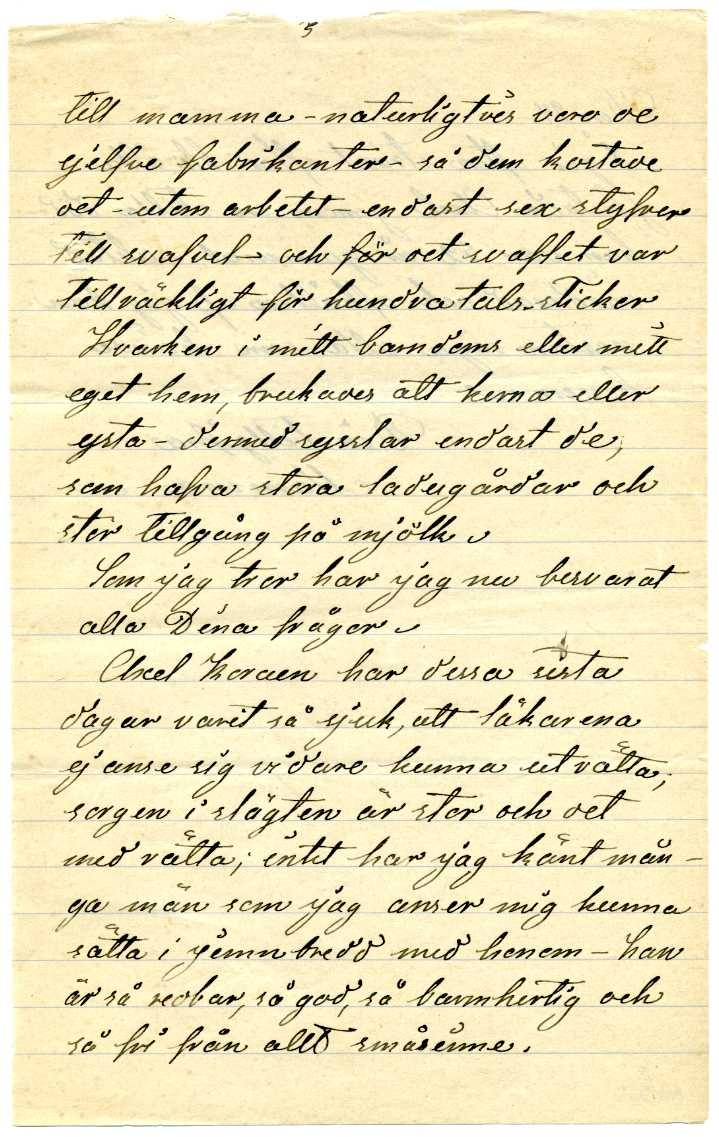 5
till mamma - naturligtvis voro de
sjelfve fabrikanter - så dem kostade
det - utom arbetet - endast sex styfver
till svafvel - och för det svaflet var
tillräckligt för hundratals-sticker
Hvarken i mitt barndoms eller mitt
eget hem, brukades att kerna eller
ysta - dermed sysslar endast de,
som hafva stora ladugårdar och
stor tillgång på mjölk.
Som jag tror har jag nu besvarat
alla Dina frågor.
Axel Koraen har dessa sista
dagar varit så sjuk, att läkarena
ej anse sig vidare kunna uträtta;
sorgen i slägten är stor och det
med rätta; intet har jag känt mån-
ga män som jag anser mig kunna
sätta i jemnbredd med honom - han
är så redbar, så god, så barmhertig och
så fri från allt småsinne.